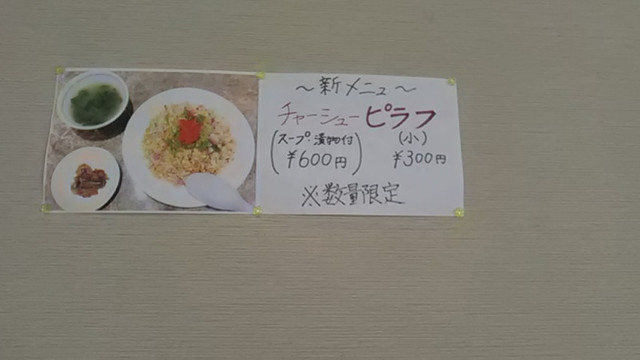 ～新メニュー～
チャーシューピラフ
(スープ・漬物付) (小)
¥600円 ¥300円
※数量限定